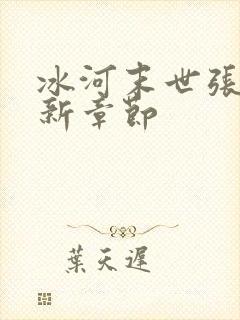 冰河末世張
新章節
葉天遲